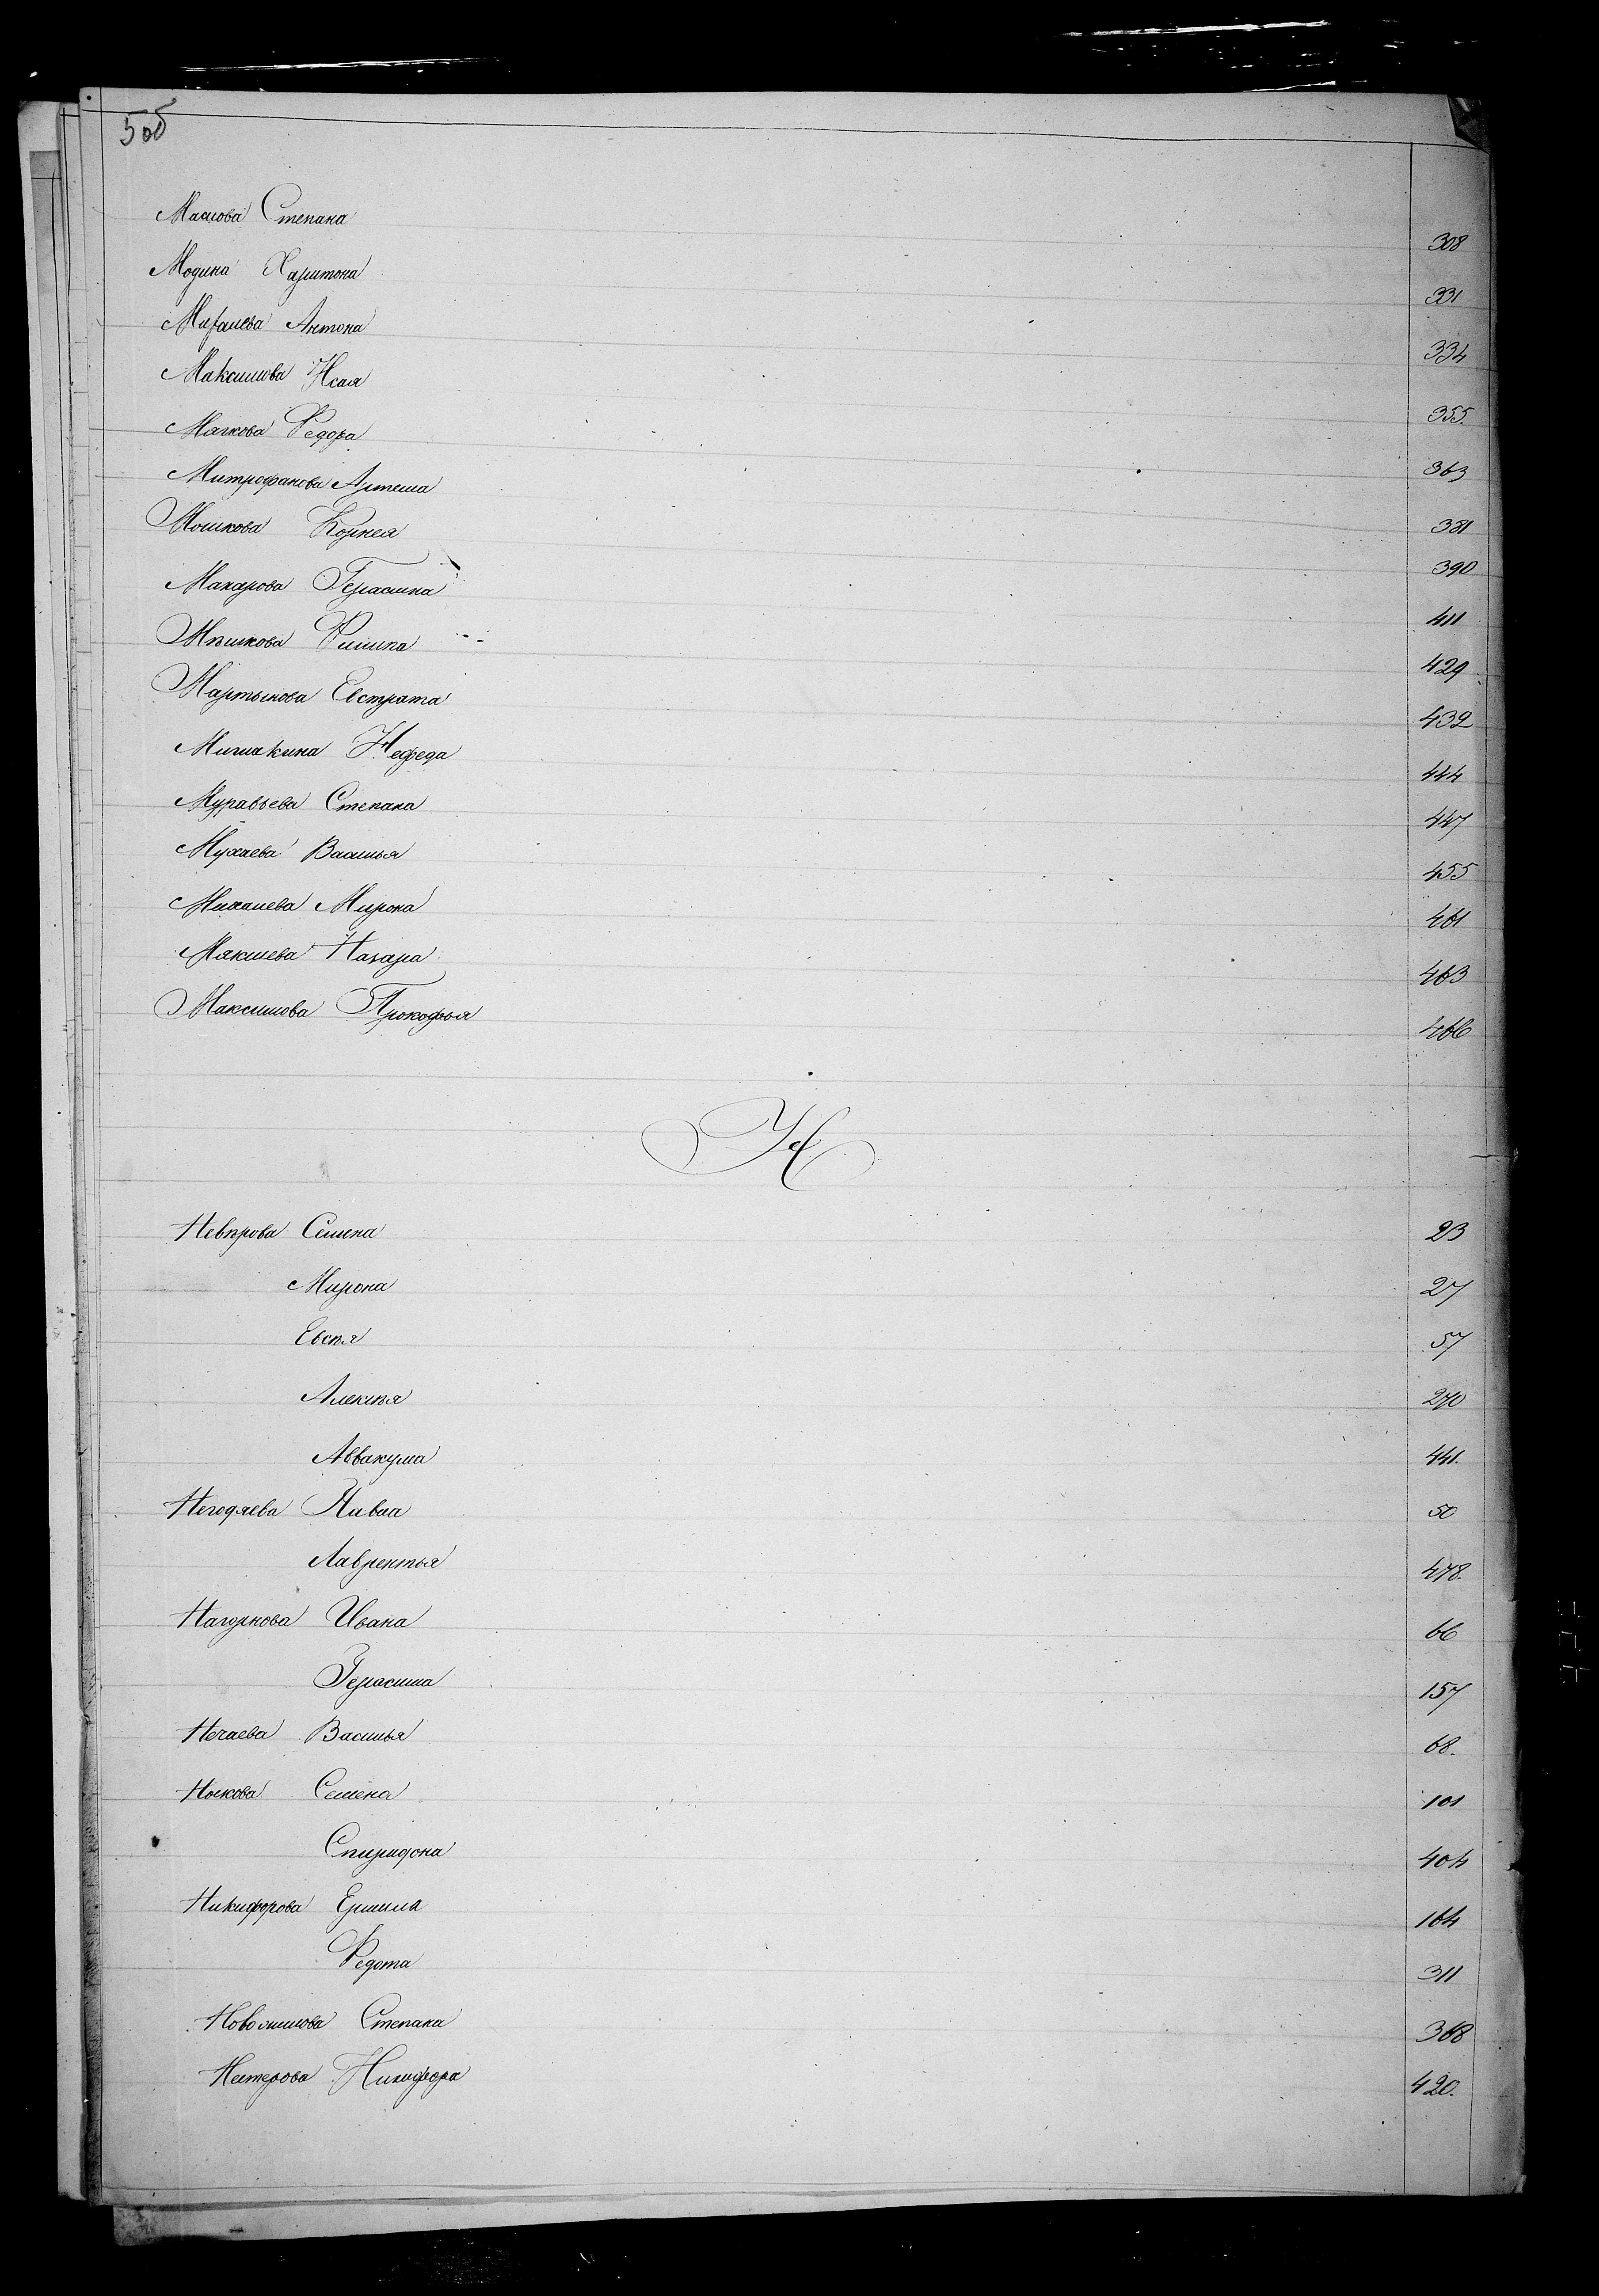 505
Маслова Степана 308
Модина Харитона 331
Антона 334
Максимова Исая 355.
Мягкова Федора 363
Митрофанова Артема 381
Мошкова Корнея 390
Макарова Герасима 411
Мѣшкова Филипа 429
Мартынова Евстрата 432
Мишакина Нефеда 444
Муравьева Степана 447
Мухаева Василья 455
Михалева Мирона 461
Макшева Назара 463
Максимова Прокофья 466
Н
Невѣрова Семена 23
Мирона 27
Евсѣя 57
Алексѣя 270
Аввакума 441.
Негодяева 50
Лаврентья 478.
Нагорнова Ивана 66
Герасима 157
Нечаева Василья 68.
Носкова Семена 101
Спиридона 404
Никифорова Ермила 164
Федота 311
Новожилова Степана 368
Нестерова Никифора 420.